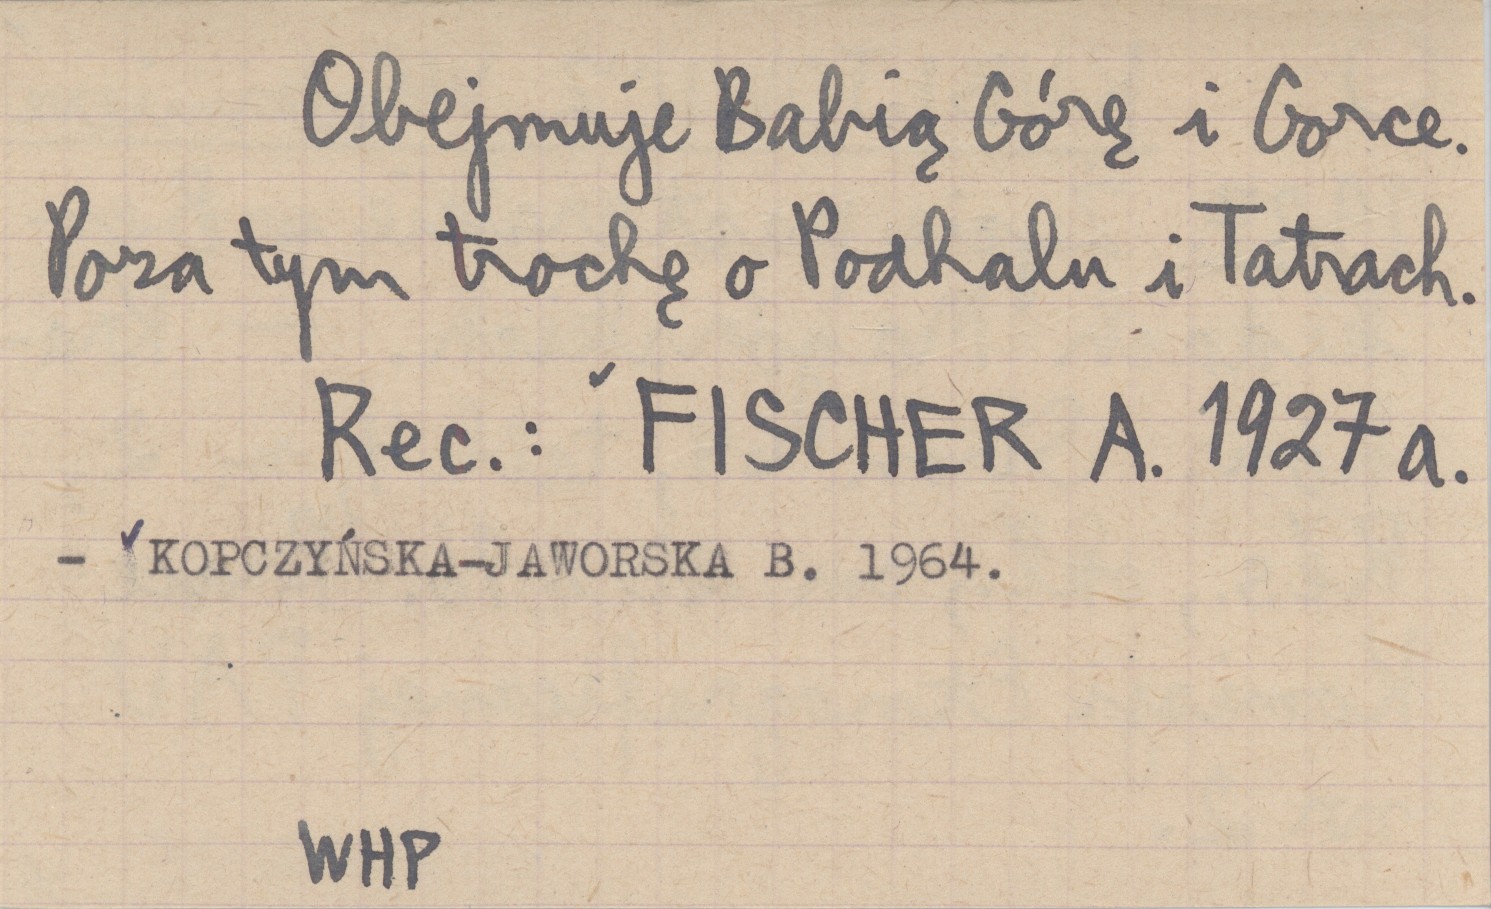 Obejmuje Babią Górę i Gorce.
Poza tym trochę o Podhalu i Tatrach.
Rec.: ✓FISCHER A. 1927a.
- ✓KOPCZYŃSKA-JAWORSKA B. 1964.
WHP